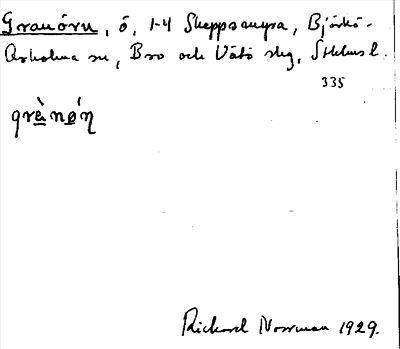 Granören, ö, 1-4 Skeppsmyra, Björkö-
Arholma sn, Bro och Vätö skg, Sthlms l.
335
grànǿŋ
Rickard Norrman 1929.